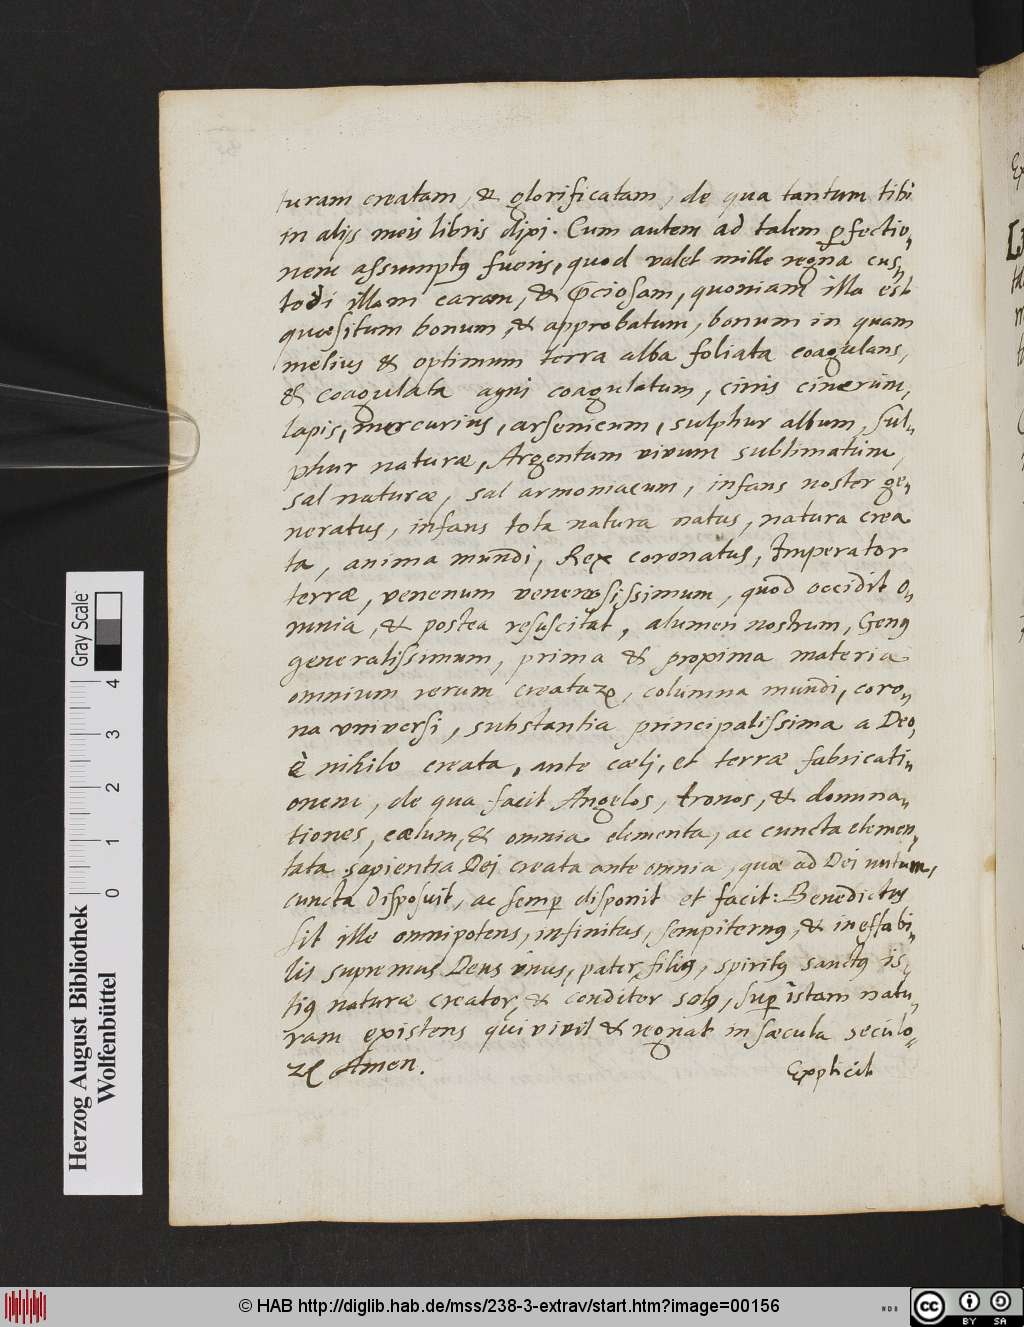 turam creatam, & glorificatam, de qua tantum tibi
in alijs meis libris dixi. Cum autem ad talem ꝑfectio-
nem assumptꝰ fueris, quod valet mille regna cus-
todi illam caram, & p̄ciosam, quoniam illa est
quæsitum bonum, & approbatum, bonum in quam
melius & optimum terra alba foliata coagulans,
& coagulata agni coagulatum, cinis cinerum,
lapis, mercurius, arsenicum, sulphur album, sul-
phur naturæ, Argentum vivum sublimatum,
sal naturæ, sal armoniacum, infans noster ge-
neratus, infans tota natura natus, natura crea
ta, anima mundi, Rex coronatus, Imperator
terræ, venenum venenosissimum, quod occidit o-
mnia, & postea resuscitat, alumen nostrum, Genꝰ
generalissimum, prima & proxima materia
omnium rerum creataꝝ, columna mundi, coro-
na vniversi, substantia principalissima a Deo,
è nihilo creata, ante cælj, et terræ fabricati-
onem, de qua facit Angelos, tronos, & domina-
tiones, cælum, & omnia elementa, ac cuncta elemen-
tata sapientia Dej creata ante omnia, quæ ad Dei nutum,
cuncta disposuit, ac semꝑ disponit et facit: Benedictus
sit ille omnipotens, infinitus, sempiternꝰ, & ineffabi-
lis supremus Deus vnus, pater, filiꝰ, spiritꝰ sanctꝰ is-
tiꝰ naturæ creator & conditor solꝰ, suꝑ istam natu-
ram existens qui vivit & regnat in sæcula seculo-
ꝝ Amen.
Explicit
Herzog August Bibliothek
Wolfenbüttel
0 1 2 3 4
Gray Scale
© HAB http://diglib.hab.de/mss/238-3-extrav/start.htm?image=00156
cc BY SA